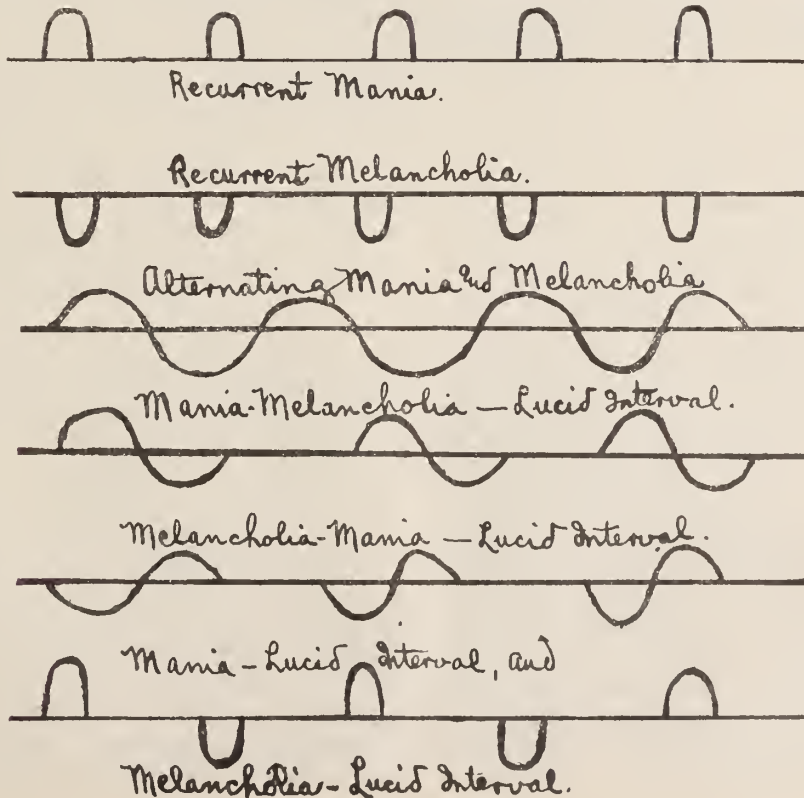 Recurrent Mania.
Recurrent Melancholia.
Alternating Mania and Melancholia
Mania-Melancholia — Lucid Interval.
Melancholia-Mania — Lucid Interval.
Mania - Lucid Interval, and
Melancholia - Lucid Interval.